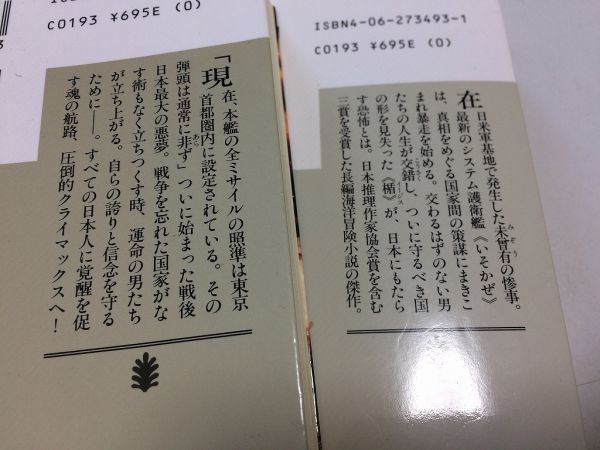 C0193 ¥695E (0)
「現在、本艦の全ミサイルの照準は東京
首都圏内に設定されている。その
弾頭は通常に非ず」ついに始まった戦後
日本最大の悪夢。戦争を忘れた国家がな
す術もなく立ちつくす時、運命の男たち
が立ち上がる。自らの誇りと信念を守る
ために――。すべての日本人に覚醒を促
す魂の航路、圧倒的クライマックスへ！
ISBN4-06-273493-1
C0193 ¥695E (0)
在日米軍基地で発生した未曾有の惨事。
最新のシステム護衛艦《いそかぜ》
は、真相をめぐる国家間の策謀にまきこ
まれ暴走を始める。交わるはずのない男
たちの人生が交錯し、ついに守るべき国
の形を見失った《楯》が、日本にもたら
す恐怖とは。日本推理作家協会賞を含む
三賞を受賞した長編海洋冒険小説の傑作。